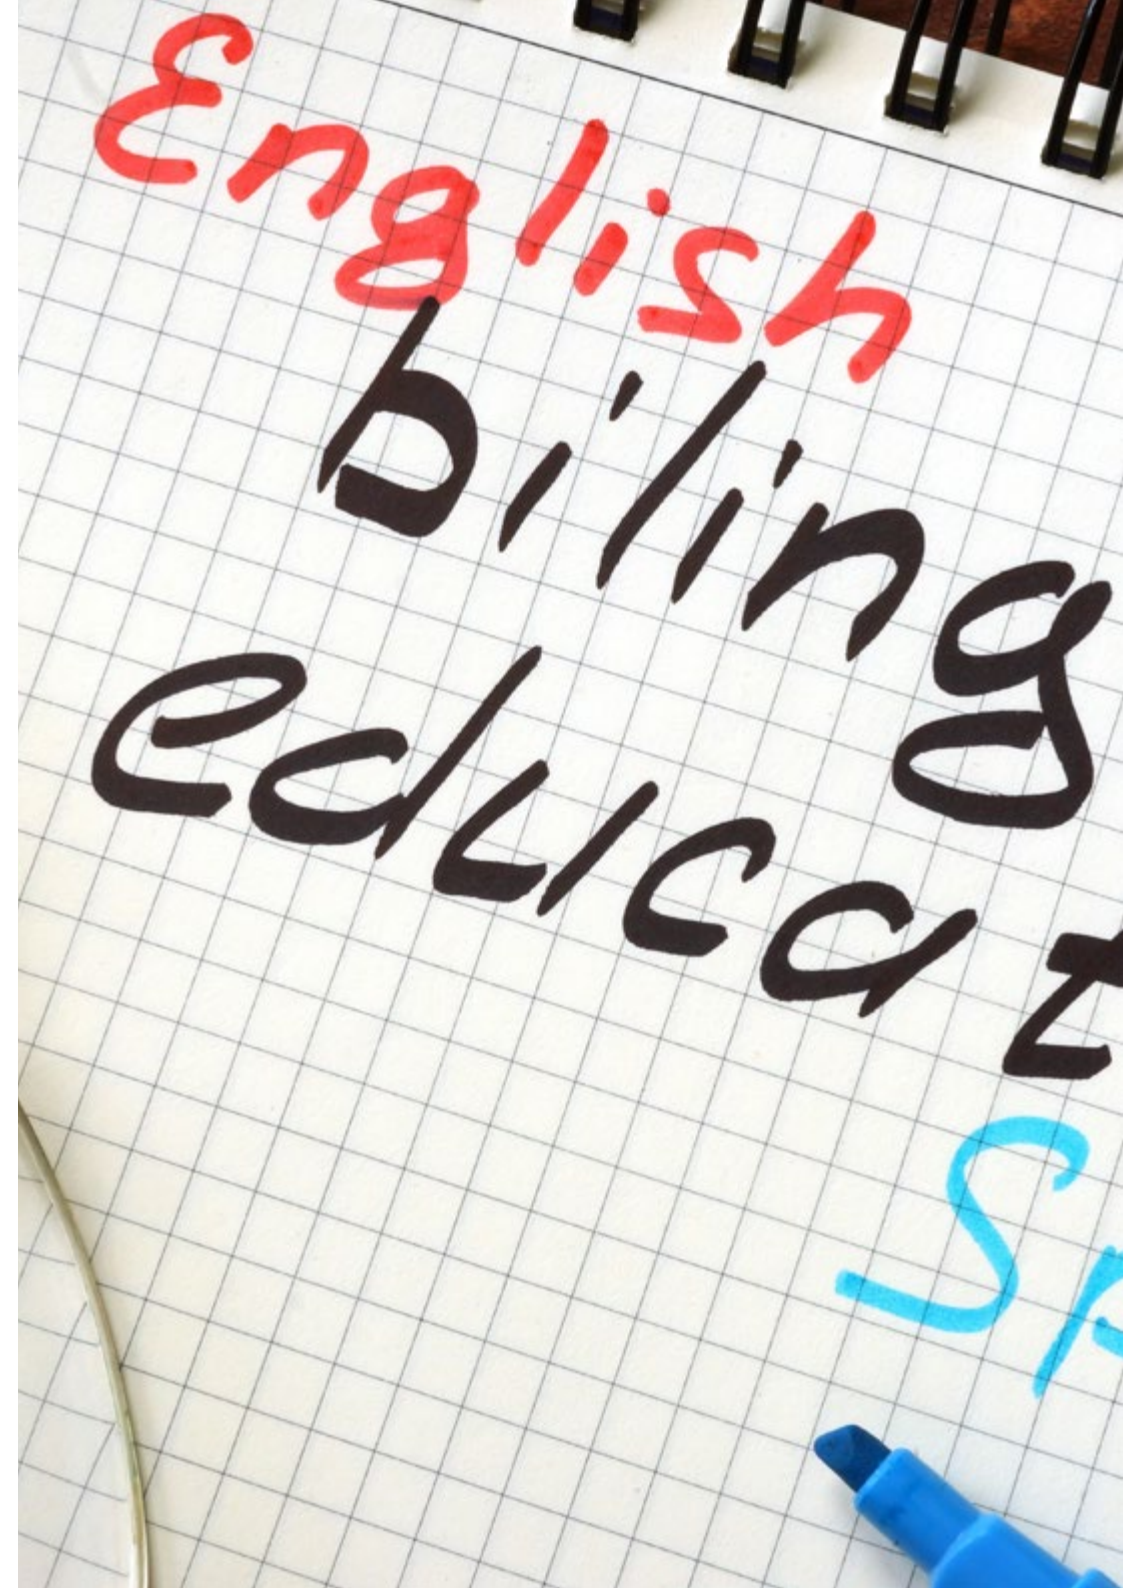 English
biling
educat
Sp